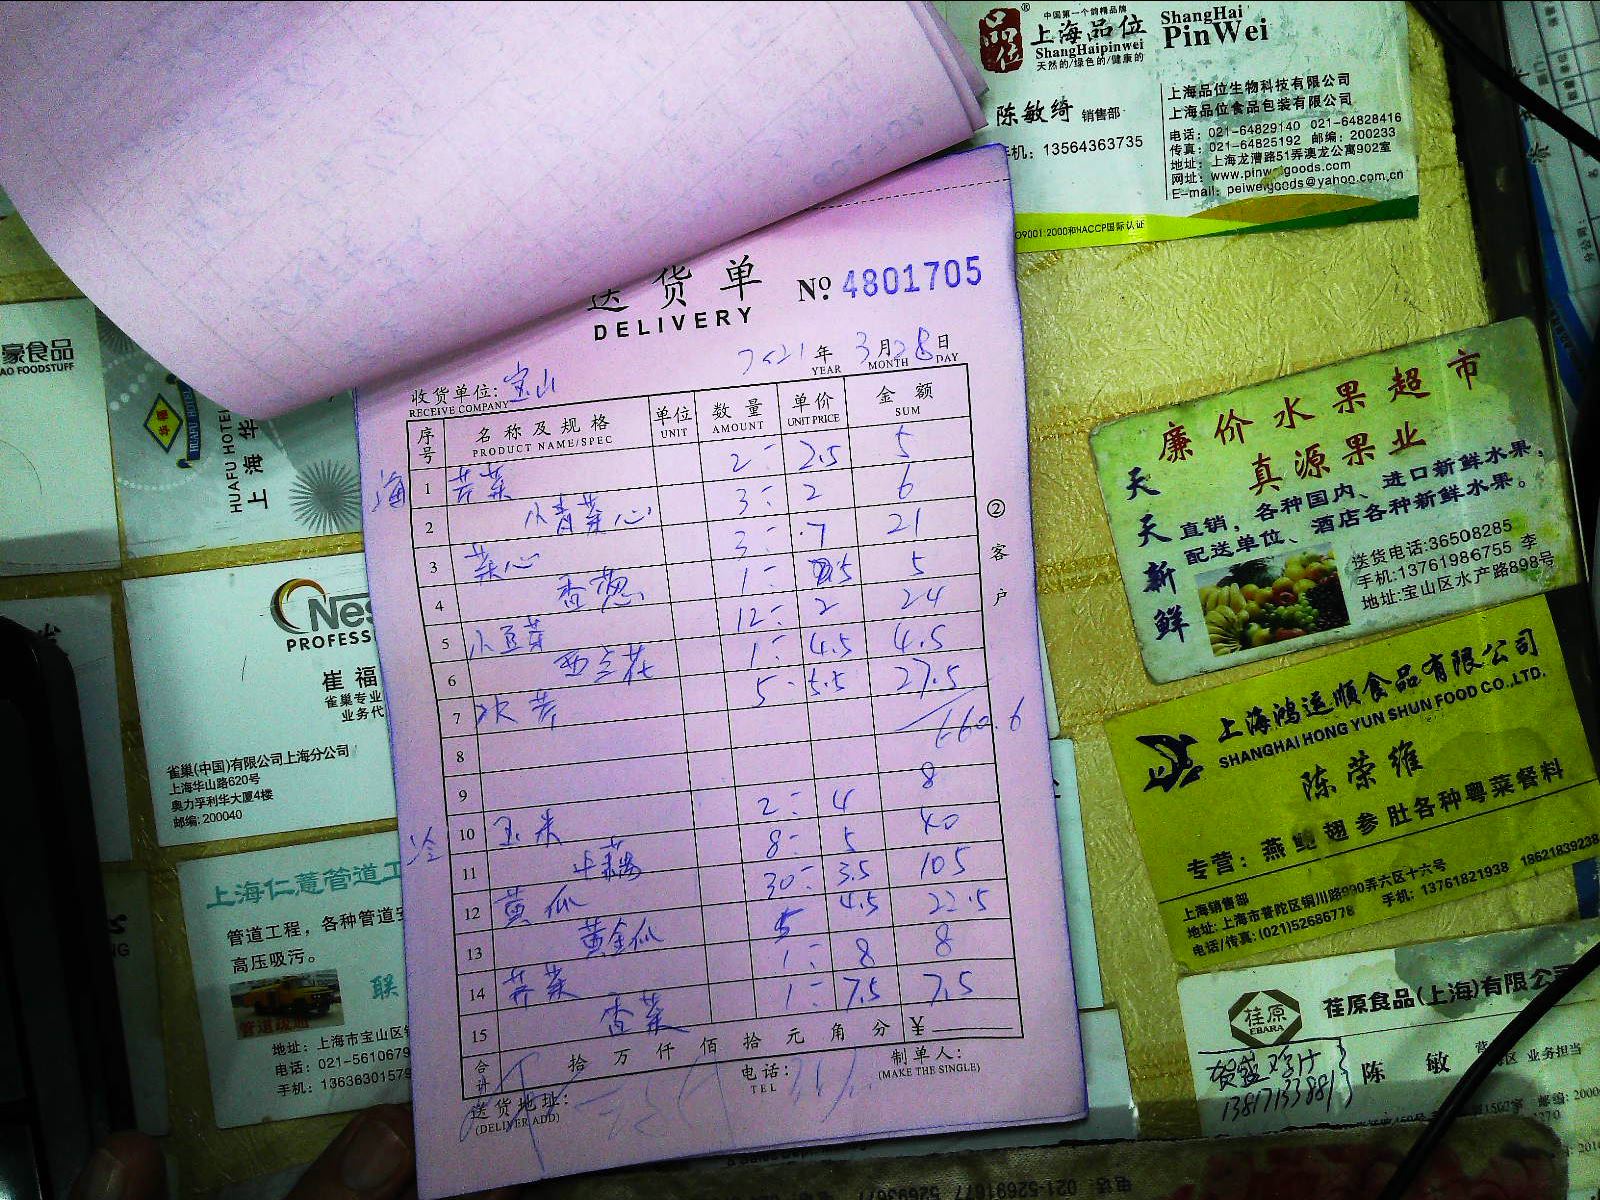 中国第一个鸽精品牌
品位
上海品位
ShangHaipinwei
天然的/绿色的/健康的
ShangHai
PinWei
陈敏绮 销售部
手机：13564363735
上海品位生物科技有限公司
上海品位食品包装有限公司
电话：021-64829140 021-64828416
传真：021-64825192 邮编：200233
地址：上海龙漕路51弄澳龙公寓902室
网址：www.pinweigoods.com
E-mail：peiweigoods@yahoo.com.cn
ISO9001:2000和HACCP国际认证
送货单
DELIVERY
No. 4801705
2021年 3月28日
YEAR MONTH DAY
收货单位：宝山
RECEIVE COMPANY
序号 名称及规格 单位 数量 单价 金额
PRODUCT NAME/SPEC UNIT AMOUNT UNIT PRICE SUM
海
1 芹菜 2 2.5 5
2 小青菜心 3 2 6
3 菜心 3 7 21
4 香葱 1 5 5
5 小豆芽 12 2 24
6 西兰花 1 4.5 4.5
7 5 5.5 27.5
8
9
冷
10 玉米 2 4 8
11 8 5 40
12 黄瓜 30 3.5 105
13 黄金瓜 5 4.5 22.5
14 芹菜 1 8 8
15 香菜 1 7.5 7.5
合计 拾 万 仟 佰 拾 元 角 分 ¥
送货地址：
(DELIVER ADD)
电话：
TEL
制单人：
(MAKE THE SINGLE)
②客户
豪食品
AO FOODSTUFF
HUAFU HOTEL
上海华
Nes
PROFESS
崔福
雀巢专业
业务代
雀巢(中国)有限公司上海分公司
上海华山路620号
奥力孚利华大厦4楼
邮编：200040
上海仁薏管道工
管道工程，各种管道
高压吸污。
联
管道疏通
地址：上海市宝山区
电话：021-5610679
手机：1363630157
廉价水果超市
真源果业
天天新鲜
直销，各种国内、进口新鲜水果，
配送单位、酒店各种新鲜水果。
送货电话:36508285
手机:13761986755 李
地址:宝山区水产路898号
上海鸿运顺食品有限公司
SHANGHAI HONG YUN SHUN FOOD CO.,LTD.
陈荣维
专营：燕鲍翅参肚各种粤菜餐料
上海销售部
地址: 上海市普陀区铜川路990弄六区十六号
电话/传真: (021)52686778 手机: 13761821938 18621839238
荏原
EBARA
荏原食品(上海)有限公
陈敏
业务担当
13817133881